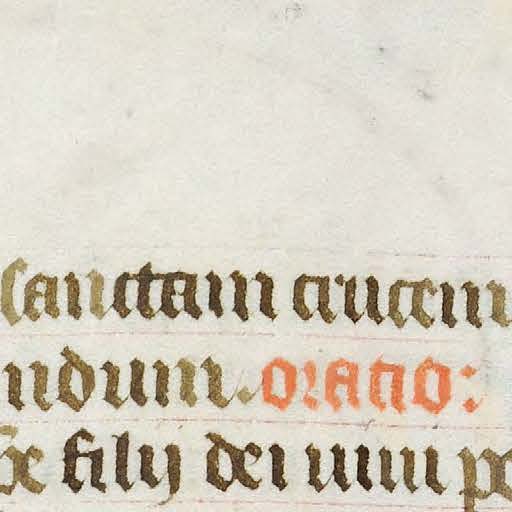 sanctam crucem
ndum. oratio:
fili dei uiui